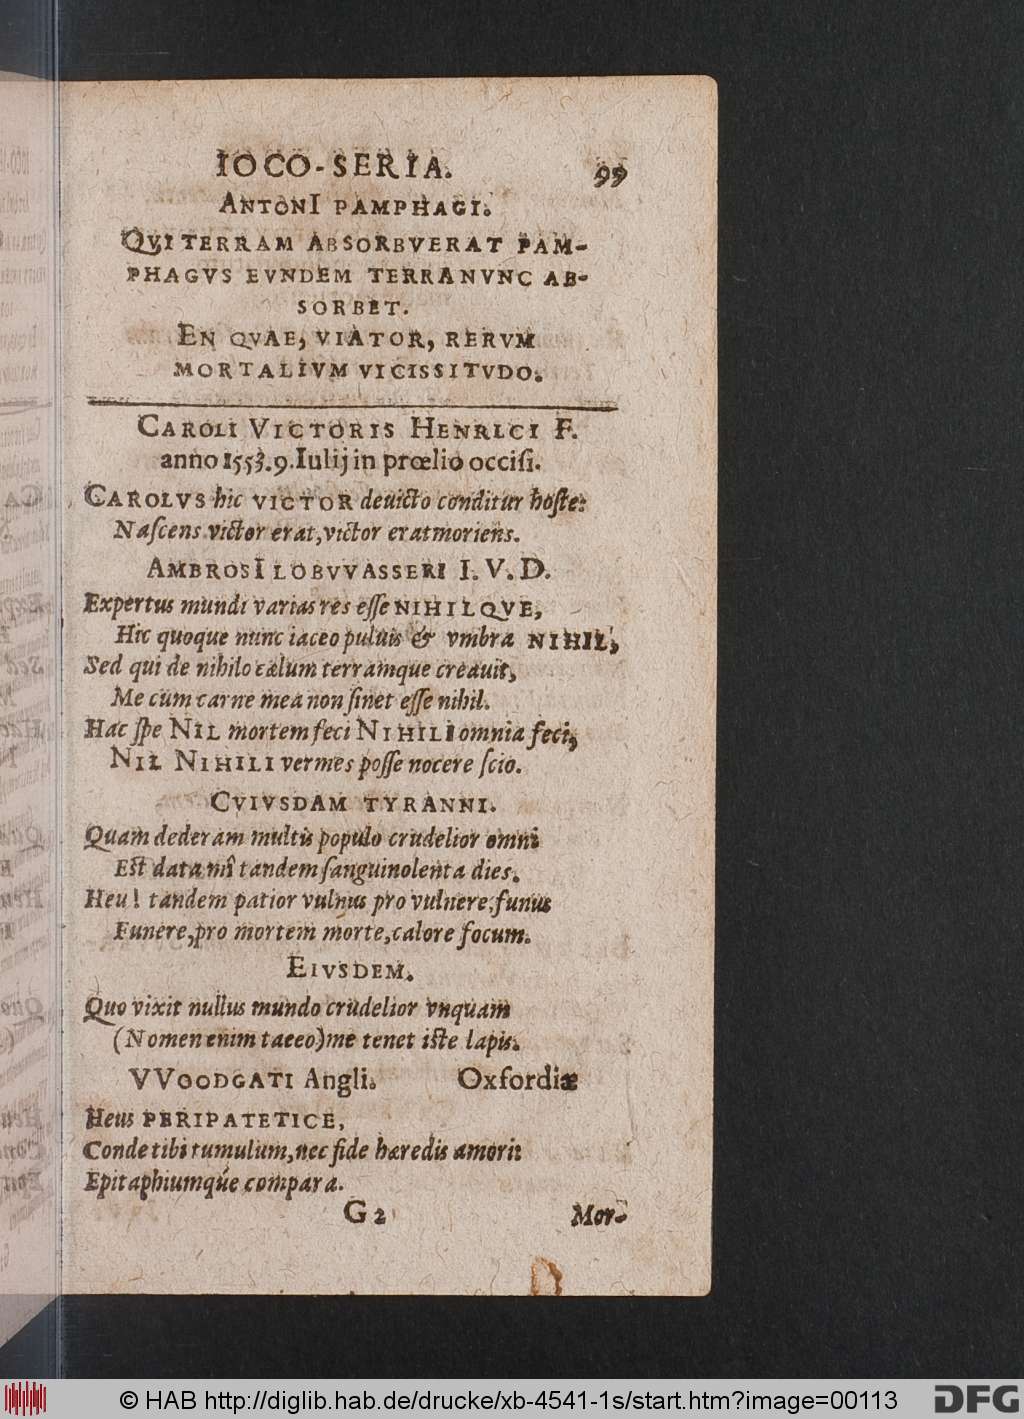 IOCO-SERIA. 99
ANTONI PAMPHAGI.
QVI TERRAM ABSORBVERAT PAM-
PHAGVS EVNDEM TERRA NVNC AB-
SORBET.
EN QVAE, VIATOR, RERVM
MORTALIVM VICISSITVDO.
CAROLI VICTORIS HENRICI F.
anno 1553. 9. Iulij in prœlio occiſi.
CAROLVS hic VICTOR deuicto conditur hoſte:
Naſcens victor erat, victor erat moriens.
AMBROSI LOBVVASSERI I. V. D.
Expertus mundi varias res eſſe NIHILQVE,
Hic quoque nunc iaceo puluis & vmbra NIHIL,
Sed qui de nihilo cælum terramque creauit,
Me cum carne mea non ſinet eſſe nihil.
Hac ſpe NIL mortem feci NIHILI omnia feci,
NIL NIHILI vermes poſſe nocere ſcio.
CVIVSDAM TYRANNI.
Quam dederam multis populo crudelior omni
Est data mî tandem ſanguinolenta dies.
Heu! tandem patior vulnus pro vulnere, funus
Funere, pro mortem morte, calore focum.
EIVSDEM.
Quo vixit nullus mundo crudelior vnquam
(Nomen enim taceo) me tenet iſte lapis.
VVOODGATI Angli. Oxfordiæ
Heus PERIPATETICE,
Conde tibi tumulum, nec fide hæredis amori:
Epitaphiumqúe compara.
G 2 Mor-
© HAB http://diglib.hab.de/drucke/xb-4541-1s/start.htm?image=00113
DFG